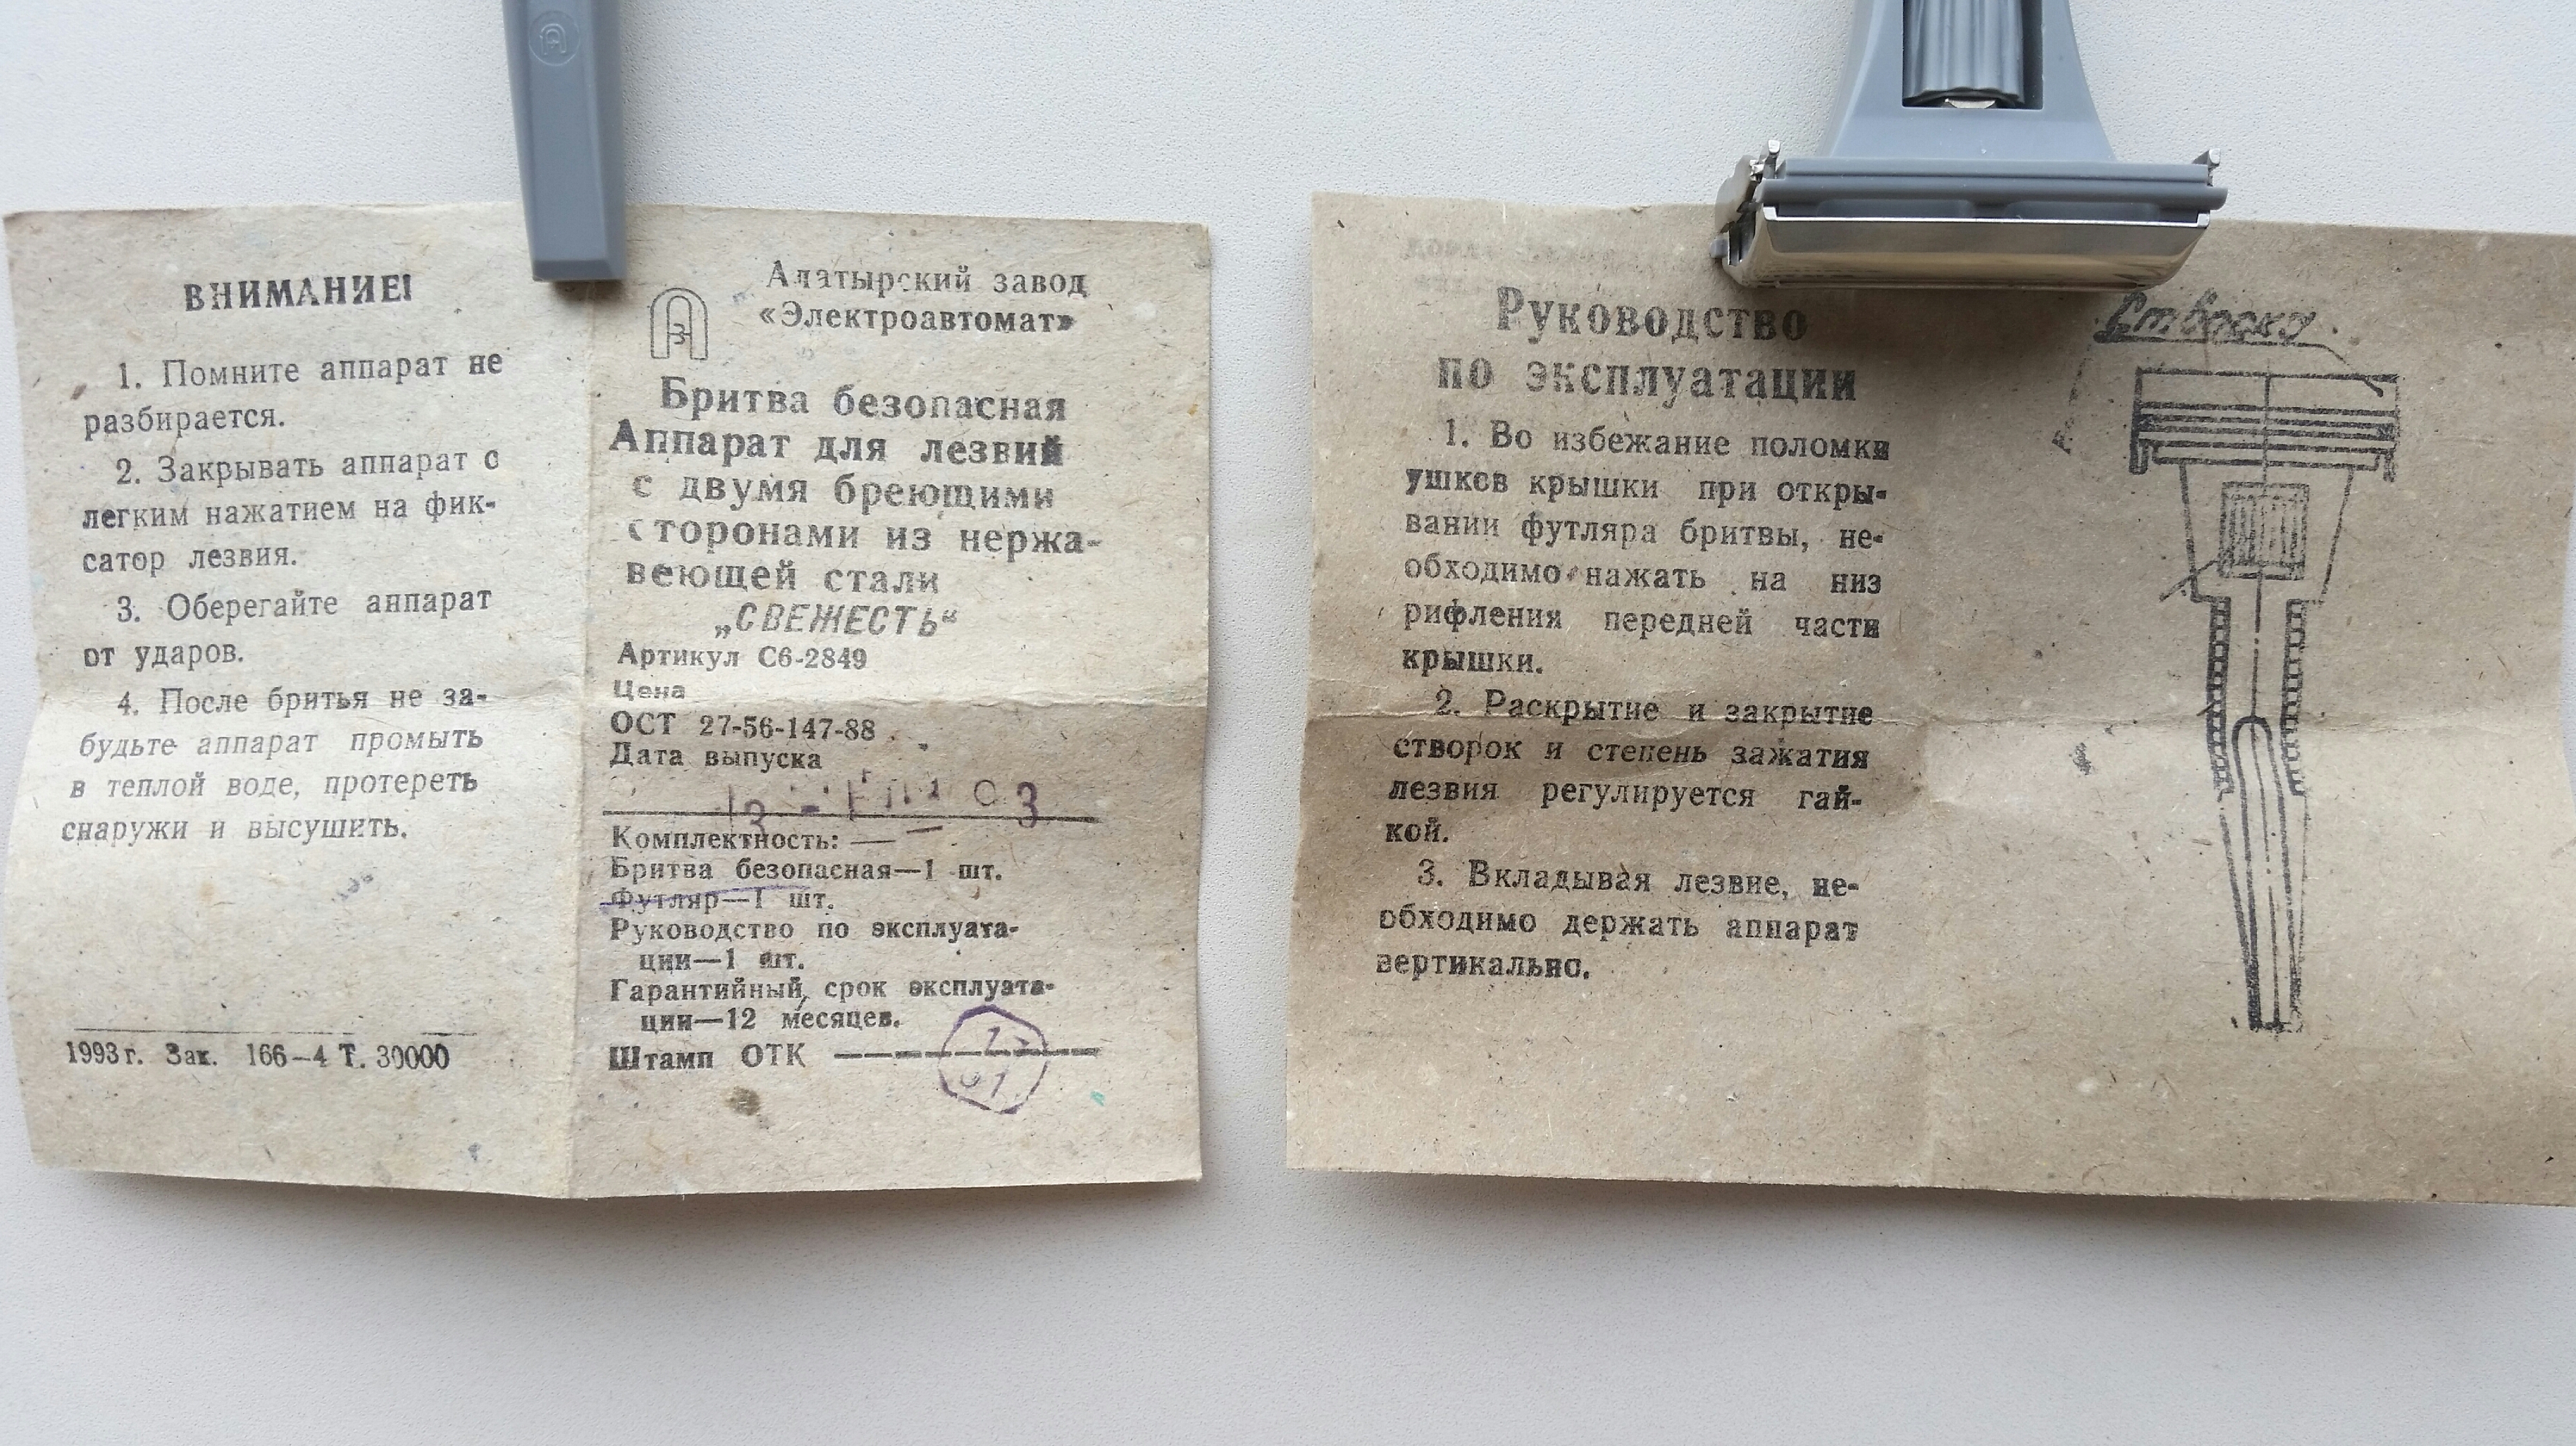 ВНИМАНИЕ!
1. Помните аппарат не
разбирается.
2. Закрывать аппарат с
легким нажатием на фик-
сатор лезвия.
3. Оберегайте аппарат
от ударов.
4. После бритья не за-
будьте аппарат промыть
в теплой воде, протереть
снаружи и высушить.
1993 г. Зак. 166—4 Т. 30000
Алатырский завод
«Электроавтомат»
Бритва безопасная
Аппарат для лезвий
с двумя бреющими
сторонами из нержа-
веющей стали
„СВЕЖЕСТЬ“
Артикул С6-2849
Цена
ОСТ 27-56-147-88
Дата выпуска
Комплектность: —
Бритва безопасная—1 шт.
Футляр—1 шт.
Руководство по эксплуата-
ции—1 шт.
Гарантийный срок эксплуата-
ции—12 месяцев.
Штамп ОТК
Руководство
по эксплуатации
1. Во избежание поломки
ушков крышки при откры-
вании футляра бритвы, не-
обходимо нажать на низ
рифления передней части
крышки.
2. Раскрытие и закрытие
створок и степень зажатия
лезвия регулируется гай-
кой.
3. Вкладывая лезвие, не-
обходимо держать аппарат
вертикально.